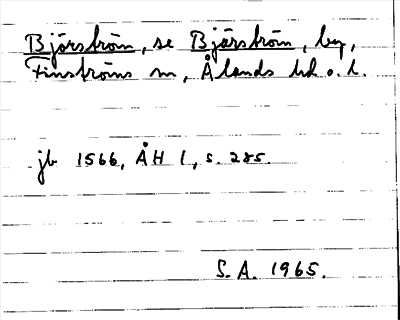 Bjørström, se Bjärström, by,
Finströms sn, Ålands hd o. l.
jb 1566, ÅH 1, s. 285.
S.A. 1965.